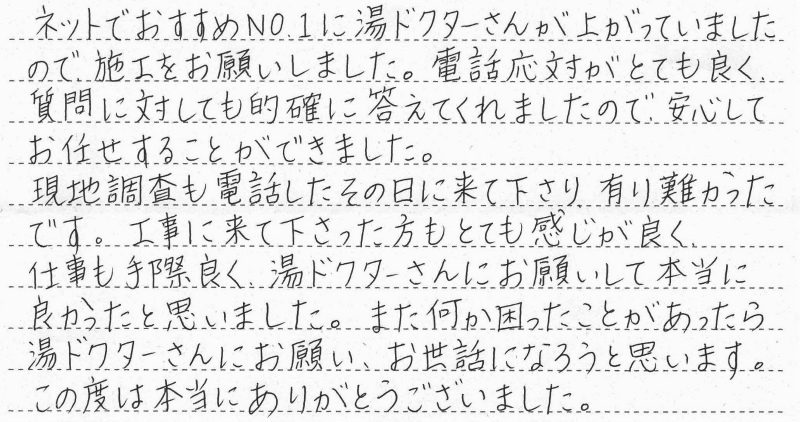 ネットでおすすめNO.1に湯ドクターさんが上がっていました
ので、施工をお願いしました。電話応対がとても良く、
質問に対しても的確に答えてくれましたので、安心して
お任せすることができました。
現地調査も電話したその日に来て下さり、有り難かった
です。工事に来て下さった方もとても感じが良く、
仕事も手際良く、湯ドクターさんにお願いして本当に
良かったと思いました。また何か困ったことがあったら
湯ドクターさんにお願い、お世話になろうと思います。
この度は本当にありがとうございました。